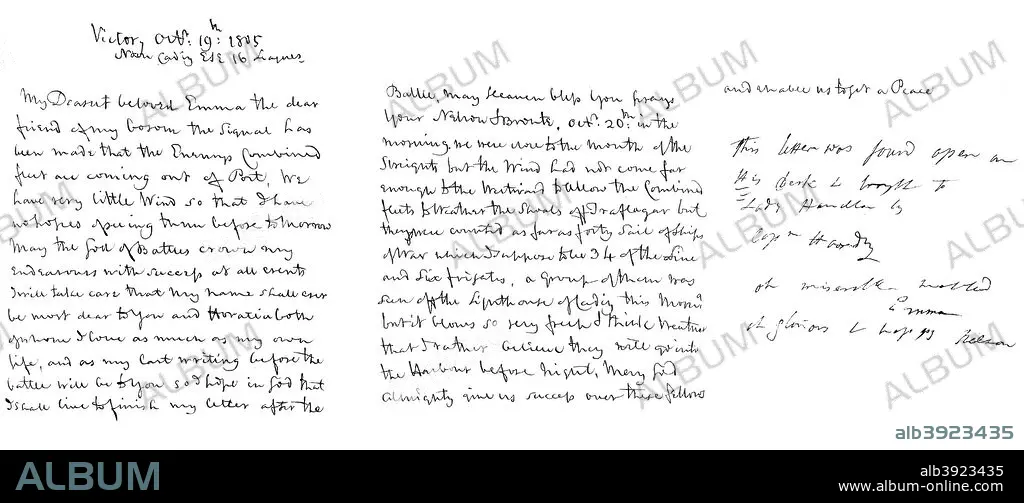 Victory Octr: 19th: 1805
Noon Cadiz ESE 16 Leagues
My Dearest beloved Emma the dear
friend of my bosom the signal has
been made that the Enemys Combined
fleet are coming out of Port, We
have very little Wind so that I have
no hopes of seeing them before to morrow
May the God of Battles crown my
Endeavours with success at all events
I will take care that my name shall ever
be most dear to you and Horatia both
of whom I love as much as my own
life, and as my last writing before the
battle will be to you so I hope in God that
I shall live to finish my letter after the
Battle, may Heaven bless you prays
your Nelson & Bronte, Octr: 20th: in the
morning we were close to the mouth of the
Streights but the Wind had not come far
enough to the Westward to allow the Combined
fleets to Weather the Shoals of Traflagar but
they were counted as far as forty Sail of Ships
of War which I suppose to be 34 of the Line
and Six frigates, a group of them was
seen off the Lighthouse of Cadiz this Morng
but it blows so very fresh & thick Weather
that I rather believe they will go into
the Harbour before night, May God
Almighty give us success over these fellows
and enable us to get a Peace
This letter was found open on
His desk & brought to
Lady Hamilton by
Capn Hardy
oh miserable wretched
Emma
oh glorious & happy Nelson
ALBUM
alb3923435
ALBUM
alb3923435
www.album-online.com